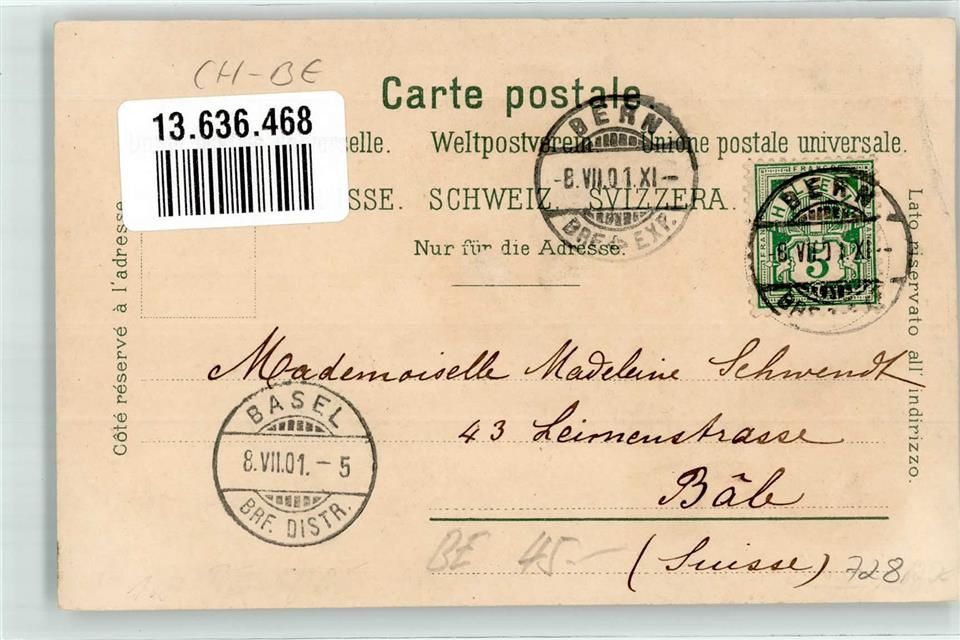 CH-BE
Carte postale
13.636.468
selle. Weltpostverein. Unione postale universale.
SSE. SCHWEIZ. SVIZZERA.
Nur für die Adresse.
Côté réservé à l'adresse
Lato riservato all'indirizzo.
BERN
-8.VII.01.XI-
BRF. EXP.
HELVETIA
FRANCO
5
BERN
-8.VII.01.XI-
Mademoiselle Madeleine Schwendt
43 Leimenstrasse
Bâle
(Suisse)
BASEL
8.VII.01.-5
BRF. DISTR.
BE 45.-
728